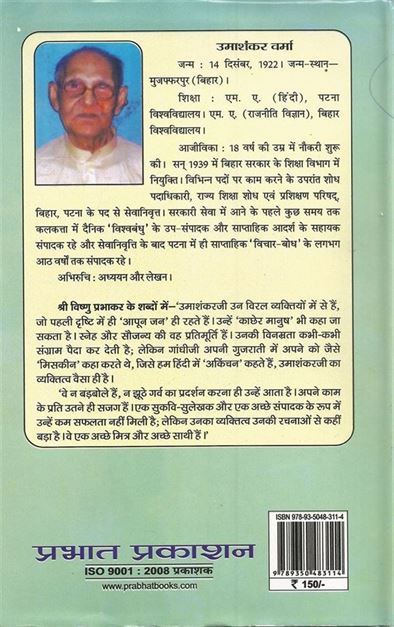 उमाशंकर वर्मा
जन्म : 14 दिसंबर, 1922। जन्म-स्थान—
मुजफ्फरपुर (बिहार)।
शिक्षा : एम. ए. (हिंदी), पटना
विश्वविद्यालय। एम. ए. (राजनीति विज्ञान), बिहार
विश्वविद्यालय।
आजीविका : 18 वर्ष की उम्र में नौकरी शुरू
की। सन् 1939 में बिहार सरकार के शिक्षा विभाग में
नियुक्ति। विभिन्न पदों पर काम करने के उपरांत शोध
पदाधिकारी, राज्य शिक्षा शोध एवं प्रशिक्षण परिषद्,
बिहार, पटना के पद से सेवानिवृत्त। सरकारी सेवा में आने के पहले कुछ समय तक
कलकत्ता में दैनिक 'विश्वबंधु' के उप-संपादक और साप्ताहिक आदर्श के सहायक
संपादक रहे और सेवानिवृत्ति के बाद पटना में ही साप्ताहिक 'विचार-बोध' के लगभग
आठ वर्षों तक संपादक रहे।
अभिरुचि : अध्ययन और लेखन।
श्री विष्णु प्रभाकर के शब्दों में—'उमाशंकरजी उन विरल व्यक्तियों में से हैं,
जो पहली दृष्टि में ही 'आपुन जन' ही रहते हैं। उन्हें 'काछेर मानुष' भी कहा जा
सकता है। स्नेह और सौजन्य की वह प्रतिमूर्ति हैं। उनकी विनम्रता कभी-कभी
संग्राम पैदा कर देती है; लेकिन गांधीजी अपनी गुजराती में अपने को जैसे
'मिसकीन' कहा करते थे, जिसे हम हिंदी में 'अकिंचन' कहते हैं, उमाशंकरजी का
व्यक्तित्व वैसा ही है।
'वे न बड़बोले हैं, न झूठे गर्व का प्रदर्शन करना ही उन्हें आता है। अपने काम
के प्रति उतने ही सजग हैं। एक सुकवि-सुलेखक और एक अच्छे संपादक के रूप में
उन्हें कम सफलता नहीं मिली है; लेकिन उनका व्यक्तित्व उनकी रचनाओं से कहीं
बड़ा है। वे एक अच्छे मित्र और अच्छे साथी हैं।'
प्रभात प्रकाशन
ISO 9001 : 2008 प्रकाशक
www.prabhatbooks.com
ISBN 978-93-5048-311-4
9 789350 483114
₹ 150/-